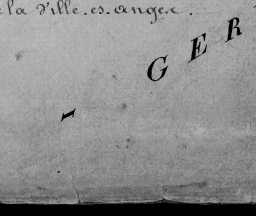 la Ville.es.anger.
I G E R